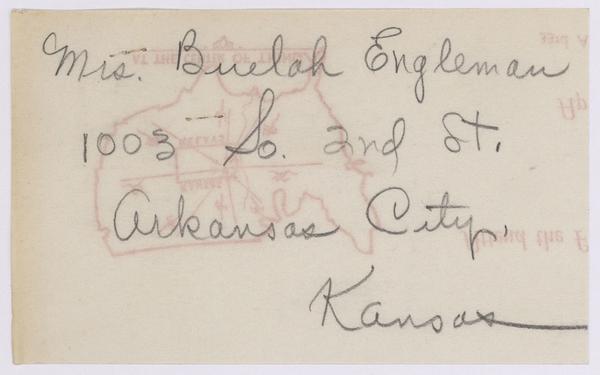 Mrs. Buelah Engleman
1003 So. 2nd St.
Arkansas City,
Kansas